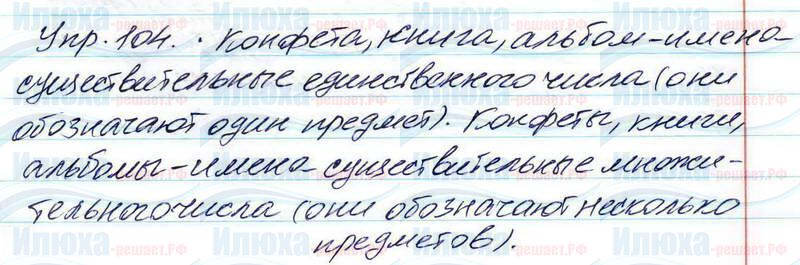 Упр. 104. . Конфета, книга, альбом-имена-
существительные единственного числа (они
обозначают один предмет). Конфеты, книги,
альбомы-имена-существительные множи-
тельного числа (они обозначают несколько
предметов).